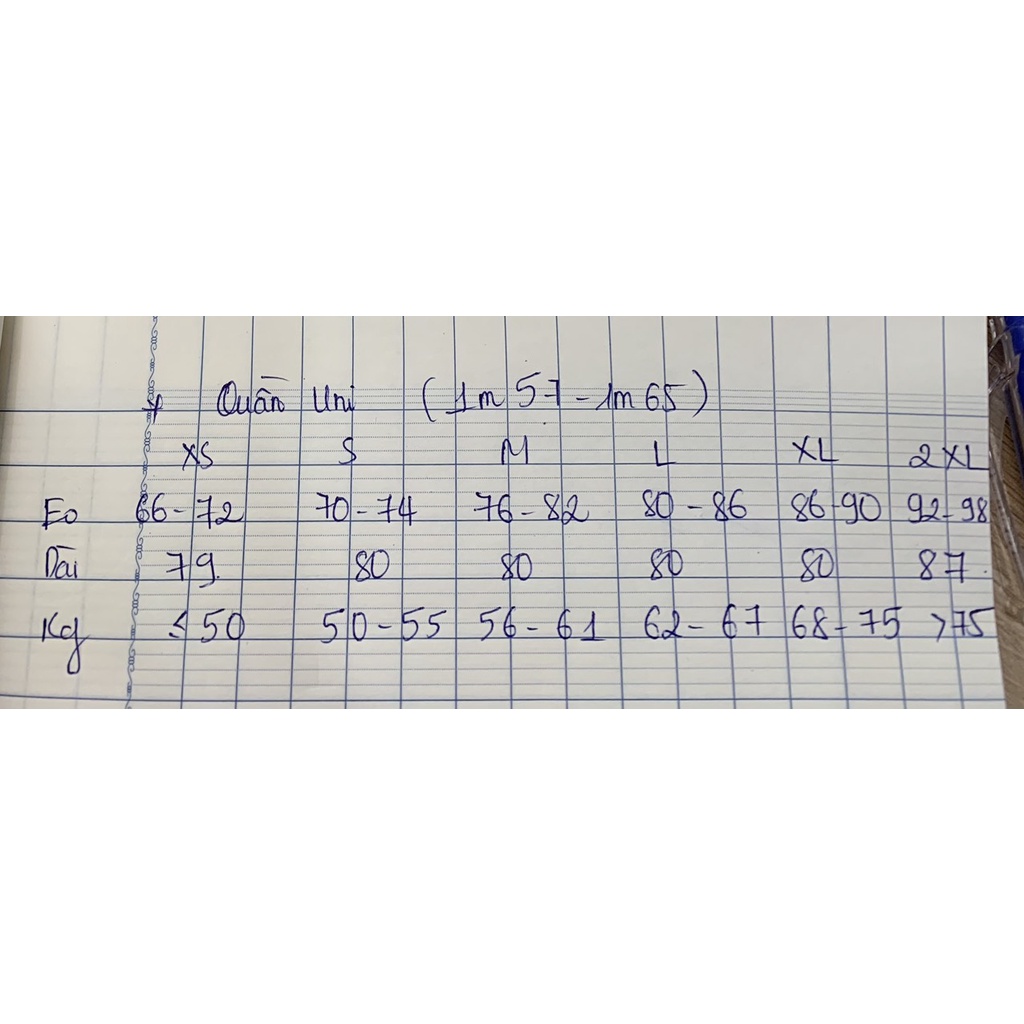 + Quần Uni (1m57-1m65)
XS S M L XL 2XL
Eo 66-72 70-74 76-82 80-86 86-90 92-98
Dài 79. 80 80 80 80 87.
Kg ≤50 50-55 56-61 62-67 68-75 >75